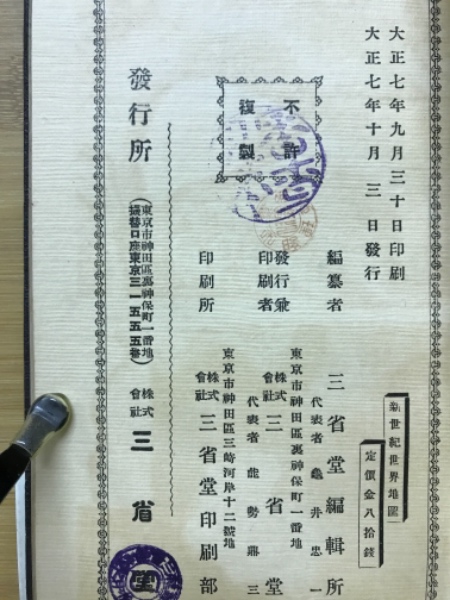 大正七年九月三十日印刷
大正七年十月三日發行
不許
複製
新世紀世界地圖
定價金八拾錢
編纂者
三省堂編輯所
代表者 龜井忠一
東京市神田區裏神保町一番地
發行兼
印刷者
株式
會社
三省堂
代表者 能勢鼎三
東京市神田區三崎河岸十二號地
印刷所
株式
會社
三省堂印刷部
發行所
(東京市神田區裏神保町一番地
振替口座東京三一五五五番)
株式
會社
三省